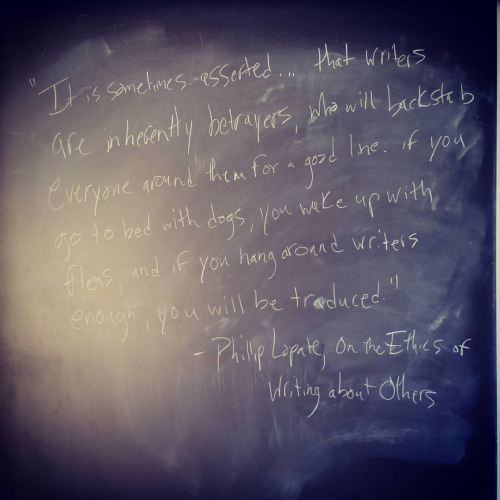 "It is sometimes asserted... that writers
are inherently betrayers, who will backstab
everyone around them for a good line. if you
go to bed with dogs, you wake up with
fleas, and if you hang around writers
enough, you will be traduced."
- Phillip Lopate, On the Ethics of
Writing about Others